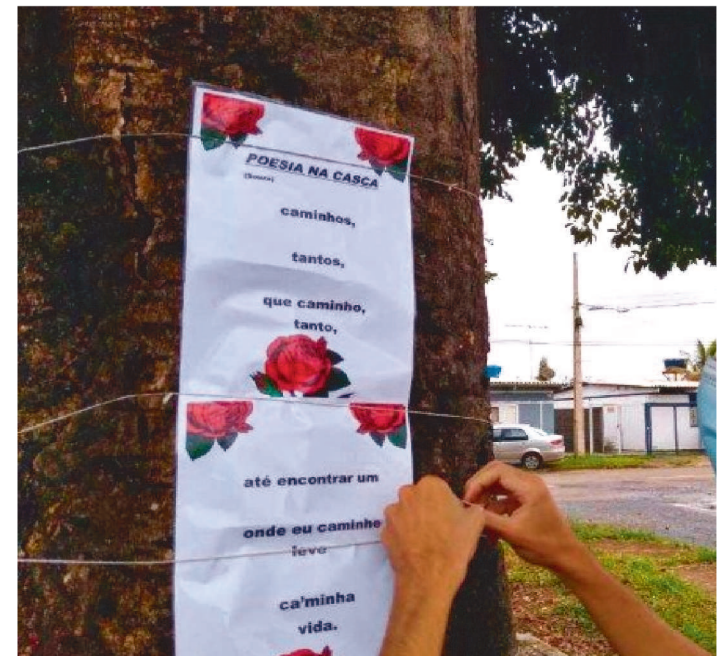 POESIA NA CASCA
caminhos,
tantos,
que caminho,
tanto,
até encontrar um
onde eu caminhe
leve
ca'minha
vida.